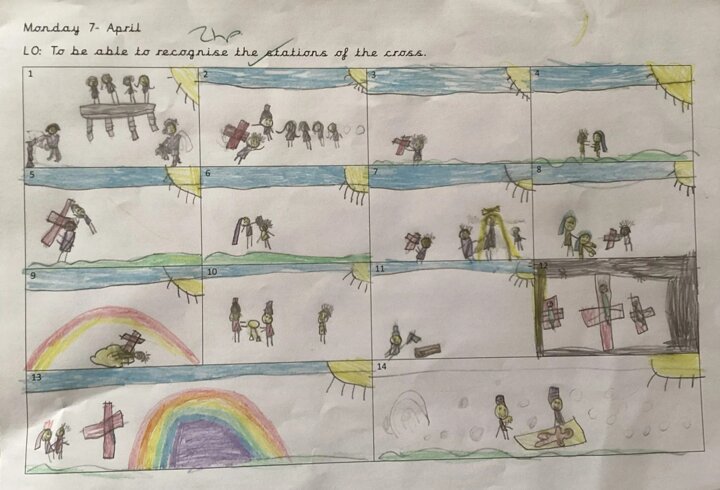 Monday 7- April
LO: To be able to recognise the stations of the cross.
1
2
3
4
5
6
7
8
9
10
11
12
13
14